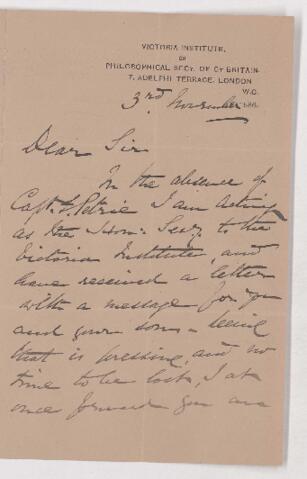 VICTORIA INSTITUTE,
OR
PHILOSOPHICAL SOCY. OF GT BRITAIN.
7, ADELPHI TERRACE, LONDON
W.C.
3rd November 188
Dear Sir
In the absence of
Capt. F. Petrie I am acting
as the Hon: Secy. to the
Victoria Institute, and
have received a letter
with a message for you
and your son -
that is pressing, and no
time to be lost, I at
once forward you